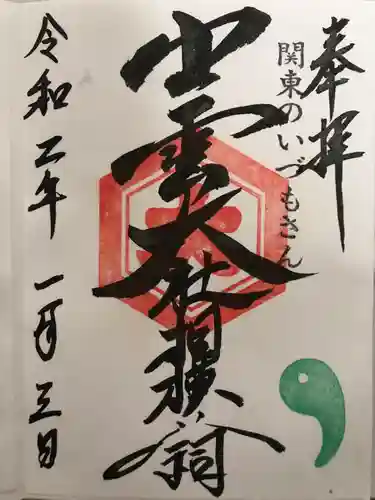 奉拝
関東のいづもさん
出雲大社相模分祠
令和二年 一月三日